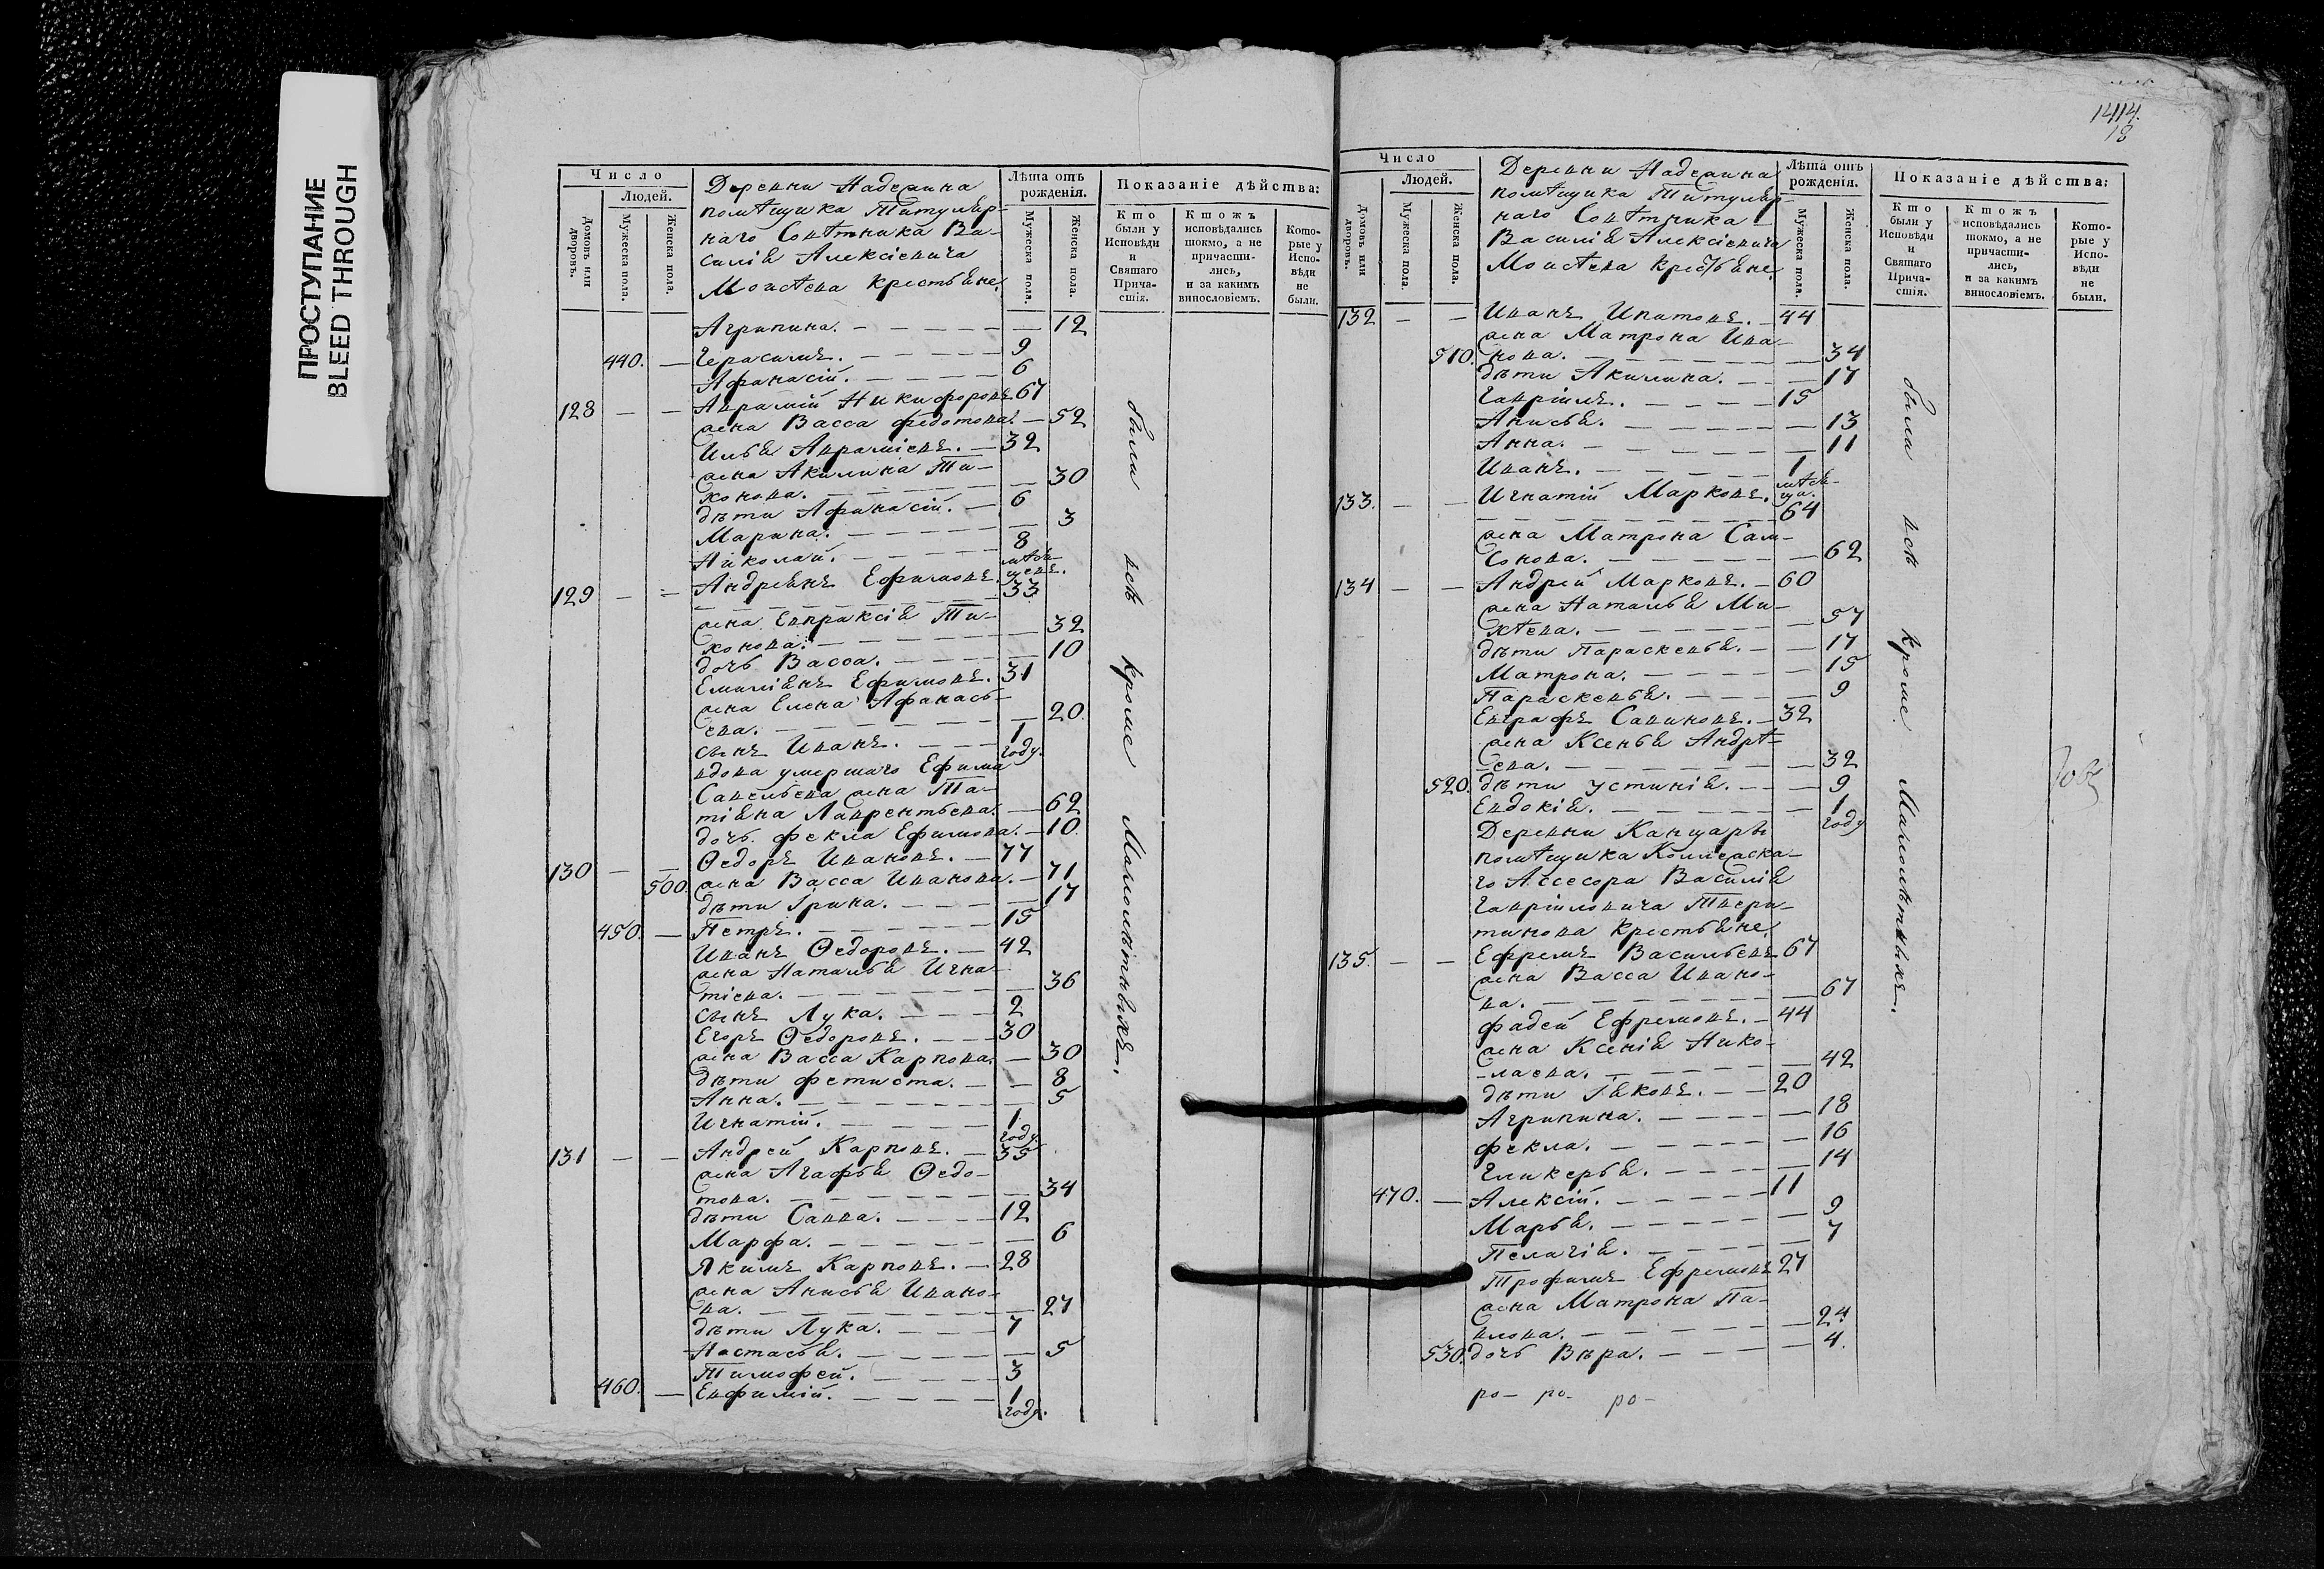 ПРОСТУПАНИЕ
BLEED THROUGH
1414.
18
Число
Людей.
Домовъ или дворовъ.
Мужеска пола.
Женска пола.
Деревни Надежина
помѣщика Титуляр-
наго Совѣтника Ва-
силія Алексіевича
Моисѣева крестьяне.
Лѣта отъ рожденія.
Мужеска пола.
Женска пола.
Показаніе дѣйства:
Кто были у Исповѣди и Святаго Прича-стія.
Ктожъ исповѣдались токмо, а не причасти-лись, и за какимъ винословіемъ.
Кото-рые у Испо-вѣди не были.
Агрипина. — 12
440. — Герасимъ. 9
Афанасій. 6
128 — — Аврамій Никифоровъ 67
жена Васса Федотова. — 52
Илья Авраміевъ. — 32
жена Акилина Ти-
хонова. — 30
дѣти Афанасій. — 6
Марина. — 3
Николай. 8 мѣся-цевъ.
129 — — Андреянъ Ефимовъ. 33
жена Евпраксія Ти-
хонова. — 32
дочь Васса. — 10
Емиліянъ Ефимовъ. 31
жена Елена Афанась-
ева. — 20.
сынъ Иванъ. 1 году.
вдова умершаго Ефима
Савельева жена Та-
тіяна Лаврентьева. — 62
дочь Фекла Ефимова. — 10.
130 — — Ѳедоръ Ивановъ. — 77
500. жена Васса Иванова. — 71
дѣти Ірина. — 17
450. — Петръ. 15
Иванъ Ѳедоровъ. — 42
жена Наталья Игна-
тіева. — 36
сынъ Лука. 2
Егоръ Ѳедоровъ. 30
жена Васса Карпова. — 30
дѣти Фетиста. — 8
Анна. — 5
Игнатій. 1 году.
131 — — Андрей Карповъ. — 35
жена Агафья Ѳедо-
това. — 34
дѣти Савва. 12
Марфа. — 6
Якимъ Карповъ. — 28
жена Анисья Ивано-
ва. — 27
дѣти Лука. 7
Настасья. — 5
Тимофей. 3
460. — Евфимій. 1 году.
были всѣ кроме Малолѣтныхъ.
Число
Людей.
Домовъ или дворовъ.
Мужеска пола.
Женска пола.
Деревни Надежина
помѣщика Титуляр-
наго Совѣтника
Василія Алексіевича
Моисѣева крестьяне.
Лѣта отъ рожденія.
Мужеска пола.
Женска пола.
Показаніе дѣйства:
Кто были у Исповѣди и Святаго Прича-стія.
Ктожъ исповѣдались токмо, а не причасти-лись, и за какимъ винословіемъ.
Кото-рые у Испо-вѣди не были.
132 — — Иванъ Ипатовъ. — 44
жена Матрона Ива-
510. нова. — 34
дѣти Акилина. — 17
Гавріилъ. 15
Анисья. — 13
Анна. — 11
Иванъ. 1 мѣся-ца.
133. — — Игнатій Марковъ. 64
жена Матрона Сам-
сонова. — 62
134 — — Андрей Марковъ. — 60
жена Наталья Ми-
хѣева. — 57
дѣти Параскевья. — 17
Матрона. — 15
Параскевья. — 9
Евграфъ Савиновъ. — 32
жена Ксенья Андрѣ-
ева. — 32
520. дѣти Устинія. — 9
Евдокія. — 1 году
Деревни Канщары
помѣщика Коллежска-
го Ассесора Василія
Гавріиловича Твери-
тинова крестьяне.
135. — — Ефремъ Васильевъ 67
жена Васса Ивано-
ва. — 67
Фадей Ефремовъ. — 44
жена Ксенія Нико-
лаева. — 42
дѣти Іаковъ. 20
Агрипина. — 18
Фекла. — 16
Гликерья. — 14
470. — Алексій. 11
Марья. — 9
Пелагія. — 7
Трофимъ Ефремовъ 27
жена Матрона Па-
влова. — 24
530. дочь Вѣра. — 4.
ро- ро- ро-
были всѣ кроме Малолѣтныхъ.